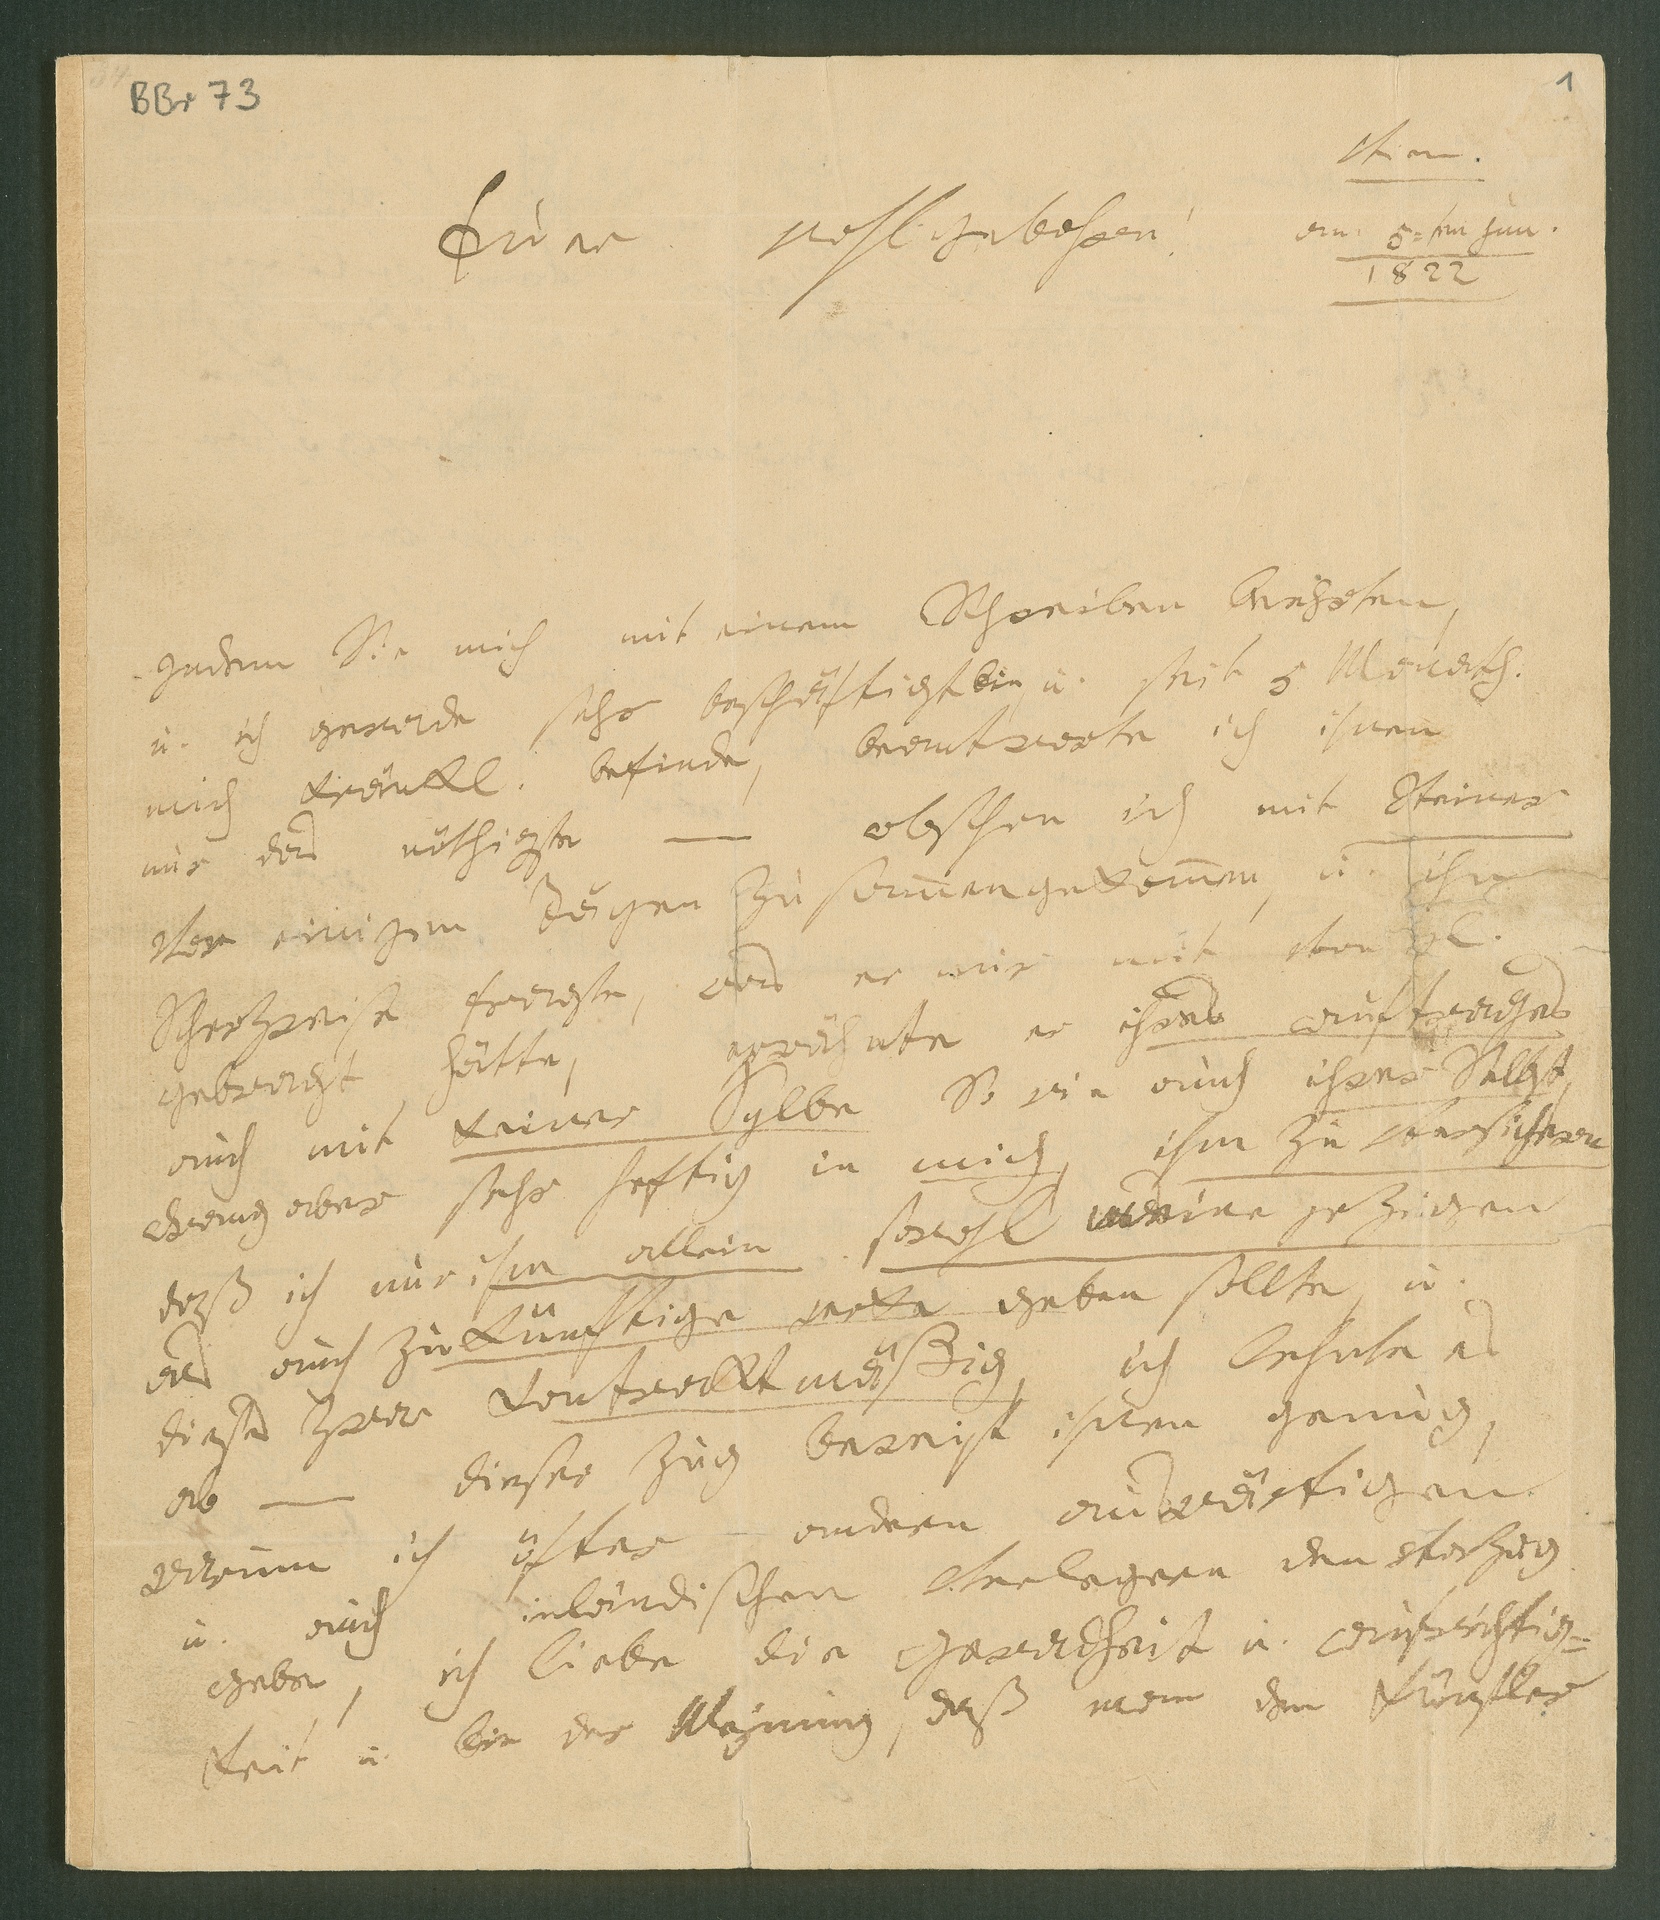 BBr 73
1
Vien.
am 5-ten jun.
1822
Euer wohlgebohren!
Indem Sie mich mit einem Schreiben beehrten,
u. ich gerade sehr beschäftigt bin, u. seit 5 Monath.
mich kränkl. befinde, beantworte ich ihnen
nur das nöthigste — obschon ich mit Steiner
vor einigen Tägen zusammengekommen, u. ihn
Scherzweise fragte, was er mir mit von
gebracht hätte, erwähnte er ihres auftrages
auch mit keiner Sylbe So wie auch ihrer Selbst,
drang aber sehr heftig in mich, ihm zu versichern
daß ich nur ihm allein sowohl meine jezigen
als auch zukünftige werke geben sollte, u.
dieses zwar Contracktmäßig, ich lehnte es
ab — dieser Zug beweist ihnen genug,
warum ich öfter andern auswärtigen
u. auch inländischen Verlegern den vorzug
gebe, ich liebe die Geradheit u. aufrichtig=
keit u. bin der Meynung, daß man den Künstler